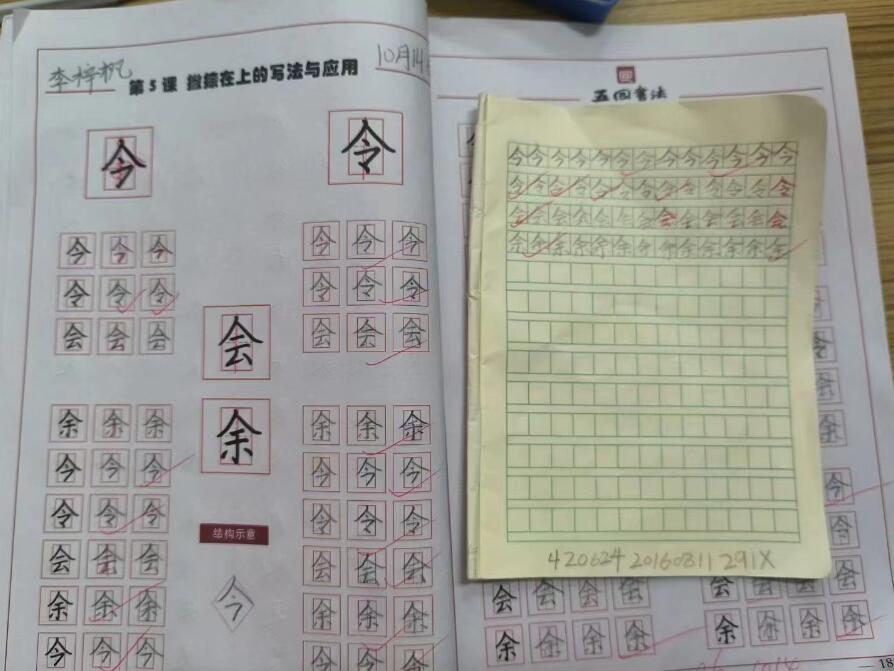 李梓枫 第5课 撇捺在上的写法与应用 10月14
今 令
今今今 今今今
令令令 令令令
会会会 会会会
会
余余余 余余余
余
今今今 今今今
令令令 令令令
结构示意
会会会 会会会
今
余余余 余余余
今今今 今今今
五回书法
今今今今今今今今今今今今今
令令令令令令令令令令令令令
会会会会会会会会会会会会会
余余余余余余余余余余余余余
420624 20160811 291X
会会会会 会会会会
余余余余 余余余余